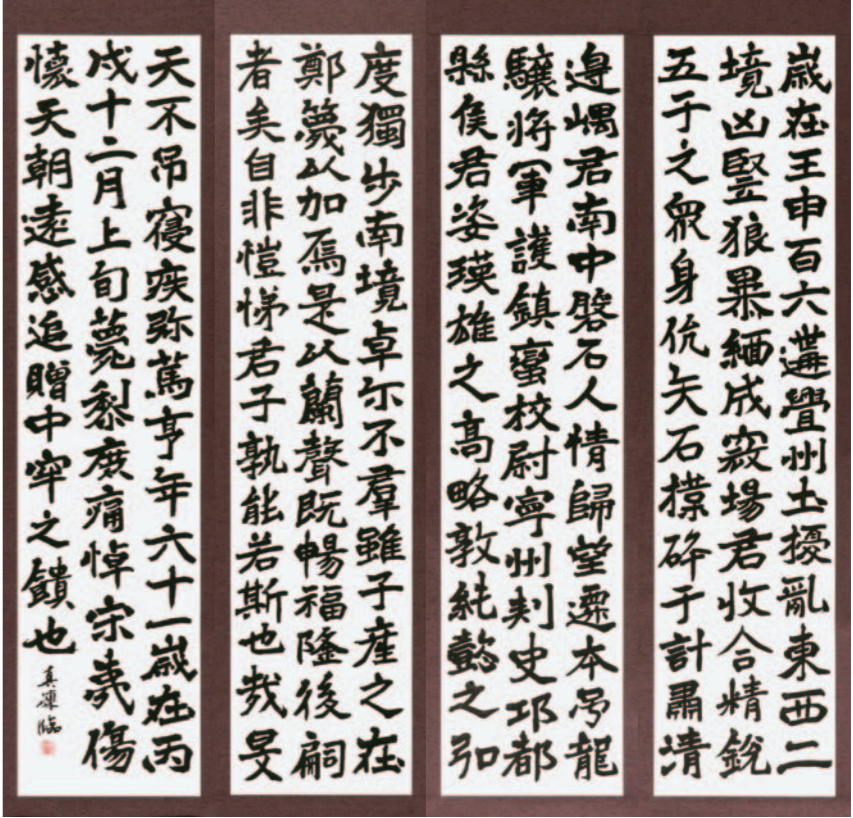 歲在王申百六遘舋州土擾亂東西二
境凶豎狼暴緬成寇場君收合精銳
五千之衆身伉矢石撲碎千計肅清
邊嵎君南中磐石人情歸望遷本号龍
驤將軍護鎮蠻校尉寧州刾史邛都
縣侯君姿瑛雄之高略敦純懿之弘
度獨步南境卓尓不羣雖子產之在
鄭篾以加焉是以蘭聲既暢福隆後嗣
者矣自非愷悌君子孰能若斯也哉旻
天不弔寢疾弥篤亨年六十一歲在丙
戌十二月上旬薨黎庶痛悼宋夷傷
懷天朝遠感追贈中牢之饋也
臨